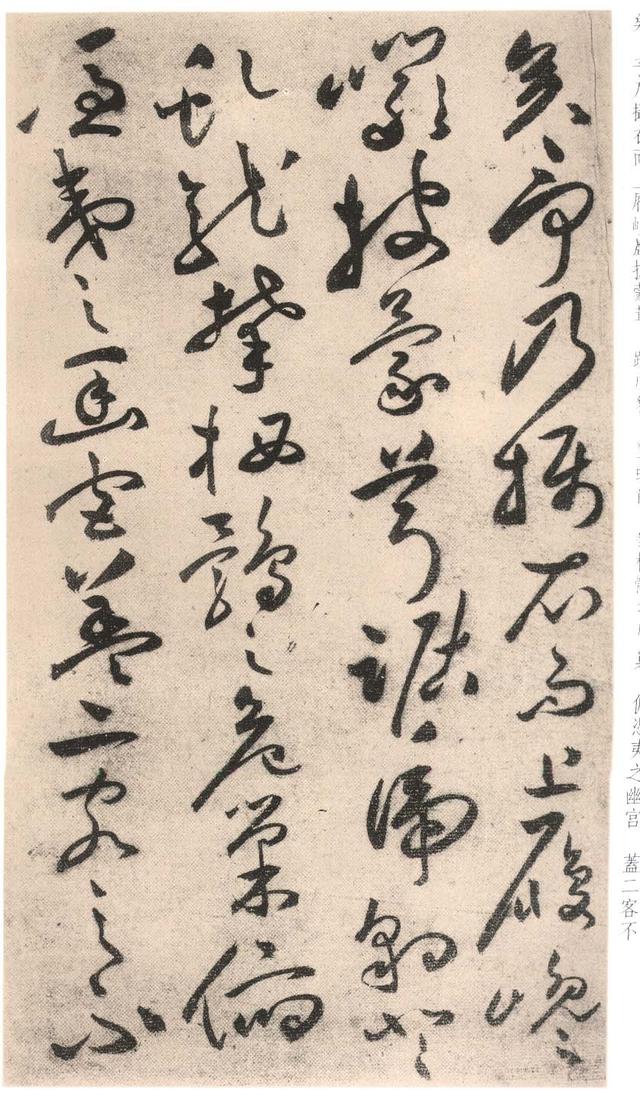 矣予乃攝衣而上履巉
巖披蒙茸踞虎豹登
虬龍攀栖鶻之危巢俯
馮夷之幽宮蓋二客之不
夷之幽宮 蓋二客不